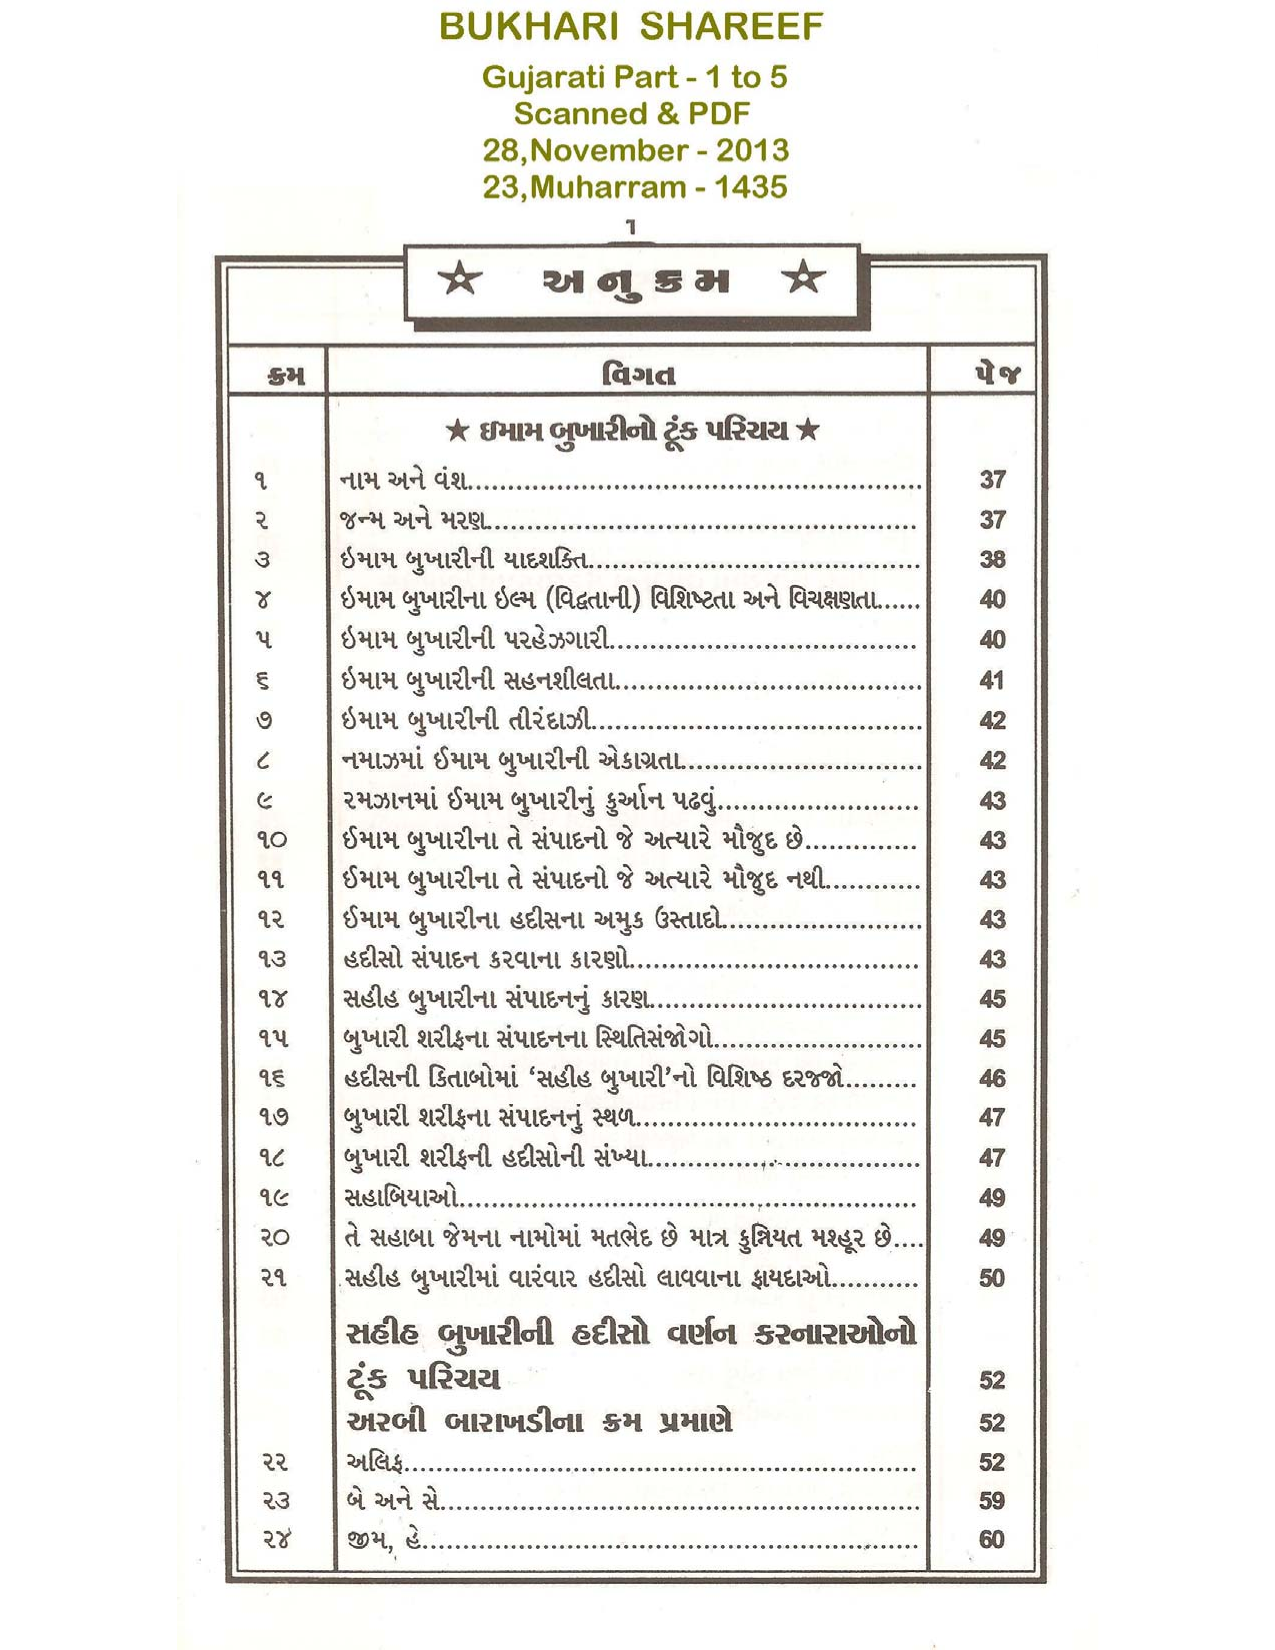 BUKHARI SHAREEF
Gujarati Part - 1 to 5
Scanned & PDF
28,November - 2013
23,Muharram - 1435
1
★ અનુક્રમ ★
ક્રમ વિગત પેજ
★ ઇમામ બુખારીનો ટૂંક પરિચય ★
૧ નામ અને વંશ 37
૨ જન્મ અને મરણ 37
૩ ઇમામ બુખારીની યાદશક્તિ 38
૪ ઇમામ બુખારીના ઇલ્મ (વિદ્વતાની) વિશિષ્ટતા અને વિચક્ષણતા 40
૫ ઇમામ બુખારીની પરહેઝગારી 40
૬ ઇમામ બુખારીની સહનશીલતા 41
૭ ઇમામ બુખારીની તીરંદાઝી 42
૮ નમાઝમાં ઈમામ બુખારીની એકાગ્રતા 42
૯ રમઝાનમાં ઈમામ બુખારીનું કુર્આન પઢવું 43
૧૦ ઈમામ બુખારીના તે સંપાદનો જે અત્યારે મૌજુદ છે 43
૧૧ ઈમામ બુખારીના તે સંપાદનો જે અત્યારે મૌજુદ નથી 43
૧૨ ઈમામ બુખારીના હદીસના અમુક ઉસ્તાદો 43
૧૩ હદીસો સંપાદન કરવાના કારણો 43
૧૪ સહીહ બુખારીના સંપાદનનું કારણ 45
૧૫ બુખારી શરીફના સંપાદનના સ્થિતિસંજોગો 45
૧૬ હદીસની કિતાબોમાં ‘સહીહ બુખારી’નો વિશિષ્ઠ દરજ્જો 46
૧૭ બુખારી શરીફના સંપાદનનું સ્થળ 47
૧૮ બુખારી શરીફની હદીસોની સંખ્યા 47
૧૯ સહાબિયાઓ 49
૨૦ તે સહાબા જેમના નામોમાં મતભેદ છે માત્ર કુન્નિયત મશ્હૂર છે 49
૨૧ સહીહ બુખારીમાં વારંવાર હદીસો લાવવાના ફાયદાઓ 50
સહીહ બુખારીની હદીસો વર્ણન કરનારાઓનો
ટૂંક પરિચય 52
અરબી બારાખડીના ક્રમ પ્રમાણે 52
૨૨ અલિફ 52
૨૩ બે અને સે 59
૨૪ જીમ, હે 60